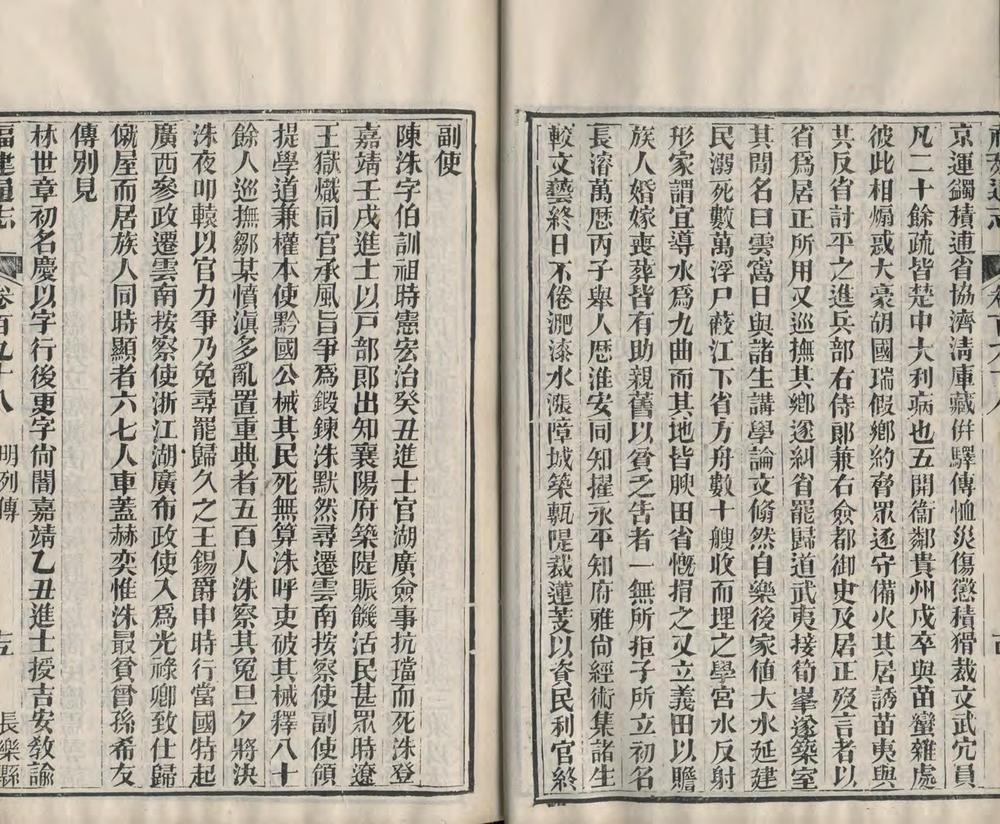 京運蠲積逋省協濟淸庫藏倂驛傳恤災傷懲積猾裁文武宂員
凡二十餘疏皆楚中大利病也五開衞鄰貴州戍卒與苗蠻雜處
彼此相煽惑大豪胡國瑞假鄉約脅眾逐守備火其居誘苗夷與
共反省計平之進兵部右侍郞兼右僉都御史及居正歿言者以
省爲居正所用又巡撫其鄉遂糾省罷歸道武夷接筍峯遂築室
其閒名曰雲窩日與諸生講學論文翛然自樂後家値大水延建
民溺死數萬浮尸蔽江下省方舟數十艘收而埋之學宮水反射
形家謂宜導水爲九曲而其地皆腴田省慨捐之又立義田以贍
族人婚嫁喪葬皆有助親舊以貧乏告者一無所拒子所立初名
長濬萬厯丙子舉人厯淮安同知擢永平知府雅尙經術集諸生
較文藝終日不倦淝漆水漲障城築甎隄裁蓮芰以資民利官終
副使
陳洙字伯訓祖時憲宏治癸丑進士官湖廣僉事抗璫而死洙登
嘉靖壬戌進士以戸部郞出知襄陽府築隄賑饑活民甚眾時遼
王獄熾同官承風旨爭爲鍛鍊洙默然尋遷雲南按察使副使領
提學道兼權本使黔國公械其民死無算洙呼吏破其械釋八十
餘人巡撫鄒某憤滇多亂置重典者五百人洙察其冤旦夕將決
洙夜叩轅以官力爭乃免尋罷歸久之王錫爵申時行當國特起
廣西參政遷雲南按察使浙江湖廣布政使入爲光祿卿致仕歸
僦屋而居族人同時顯者六七人車蓋赫奕惟洙最貧曾孫希友
傳別見
林世章初名慶以字行後更字尙闇嘉靖乙丑進士授吉安敎諭
福建通志 卷百九十八 明列傳 長樂縣